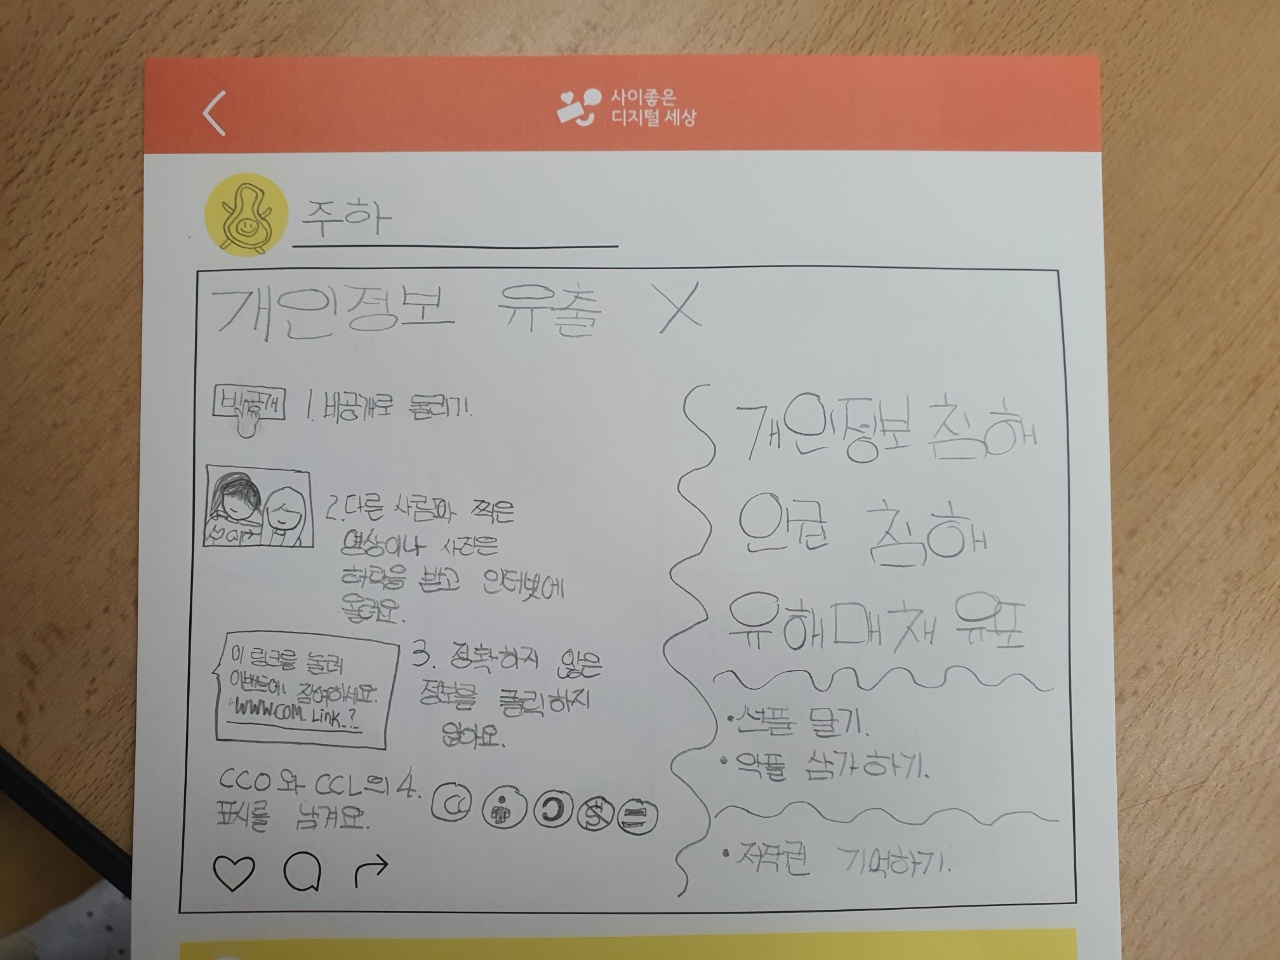 사이좋은
디지털 세상
주하
개인정보 유출 X
비공개
1. 비공개로 돌리기.
2. 다른 사람과 찍은
영상이나 사진은
허락을 받고 인터넷에
올려요.
이 링크를 눌러
이벤트에 참여하세요.
WWW.COM_Link_?
3. 정확하지 않은
정보를 클릭하지
않아요.
CCO와 CCL의 4.
표시를 남겨요.
개인정보 침해
인권 침해
유해매체 유포
·선플 달기.
·악플 삼가하기.
·저작권 기억하기.